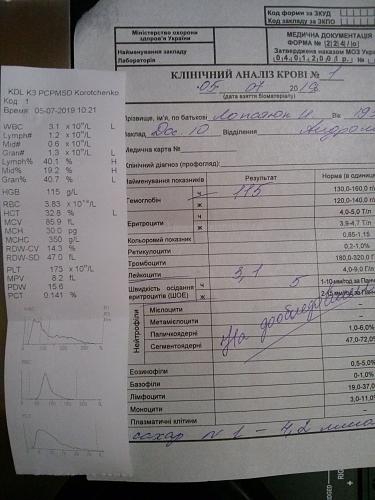 KDL K3 PCPM5D Korotchenko
Код: 1
Время: 05-07-2019 10:21
WBC 3.1 x 10⁹/L L
Lymph# 1.2 x 10⁹/L
Mid# 0.6 x 10⁹/L
Gran# 1.3 x 10⁹/L L
Lymph% 40.1 % H
Mid% 19.2 % H
Gran% 40.7 % L
HGB 115 g/L
RBC 3.83 x 10¹²/L
HCT 32.8 % L
MCV 85.9 fL
MCH 30.0 pg
MCHC 350 g/L
RDW-CV 14.3 %
RDW-SD 47.0 fL
PLT 173 x 10⁹/L
MPV 8.2 fL
PDW 15.6
PCT 0.141 %
WBC
RBC
PLT
Код форми за ЗКУД
Код закладу за ЗКПО
Міністерство охорони
здоров'я України
Найменування закладу
Лабораторія
МЕДИЧНА ДОКУМЕНТАЦІЯ
ФОРМА № 224/о
Затверджена наказом МОЗ України
04.01.2001 р. №
КЛІНІЧНИЙ АНАЛІЗ КРОВІ № 1
05 07 2019
(дата взяття біоматеріалу)
Прізвище, ім'я, по батькові
Заклад Відділення
Медична карта №
Клінічний діагноз (профогляд):
Найменування показників Результат Норма (в одиницях
Гемоглобін ч 115 130,0-160,0 г/л
ж 120,0-140,0 г/л
Еритроцити ч 4,0-5,0 Т/л
ж 3,9-4,7 Т/л
Кольоровий показник 0,85-1,15
Ретикулоцити 0,2-1,0%
Тромбоцити 180,0-320,0 Г
Лейкоцити 3,1 4,0-9,0 Г/л
Швидкість осідання
еритроцитів (ШОЕ) ч 5 1-10 мм/год за Пан
ж 2-15 мм/год за Пан
Нейтрофіли
Мієлоцити
Метамієлоцити
Паличкоядерні 1,0-6,0%
Сегментоядерні 47,0-72,0%
На дообследование
Еозинофіли 0,5-5,0%
Базофіли 0-1,0%
Лімфоцити 19,0-37,0
Моноцити 3,0-11,0%
Плазматичні клітини
сахар N 1 – 4,2 ммол